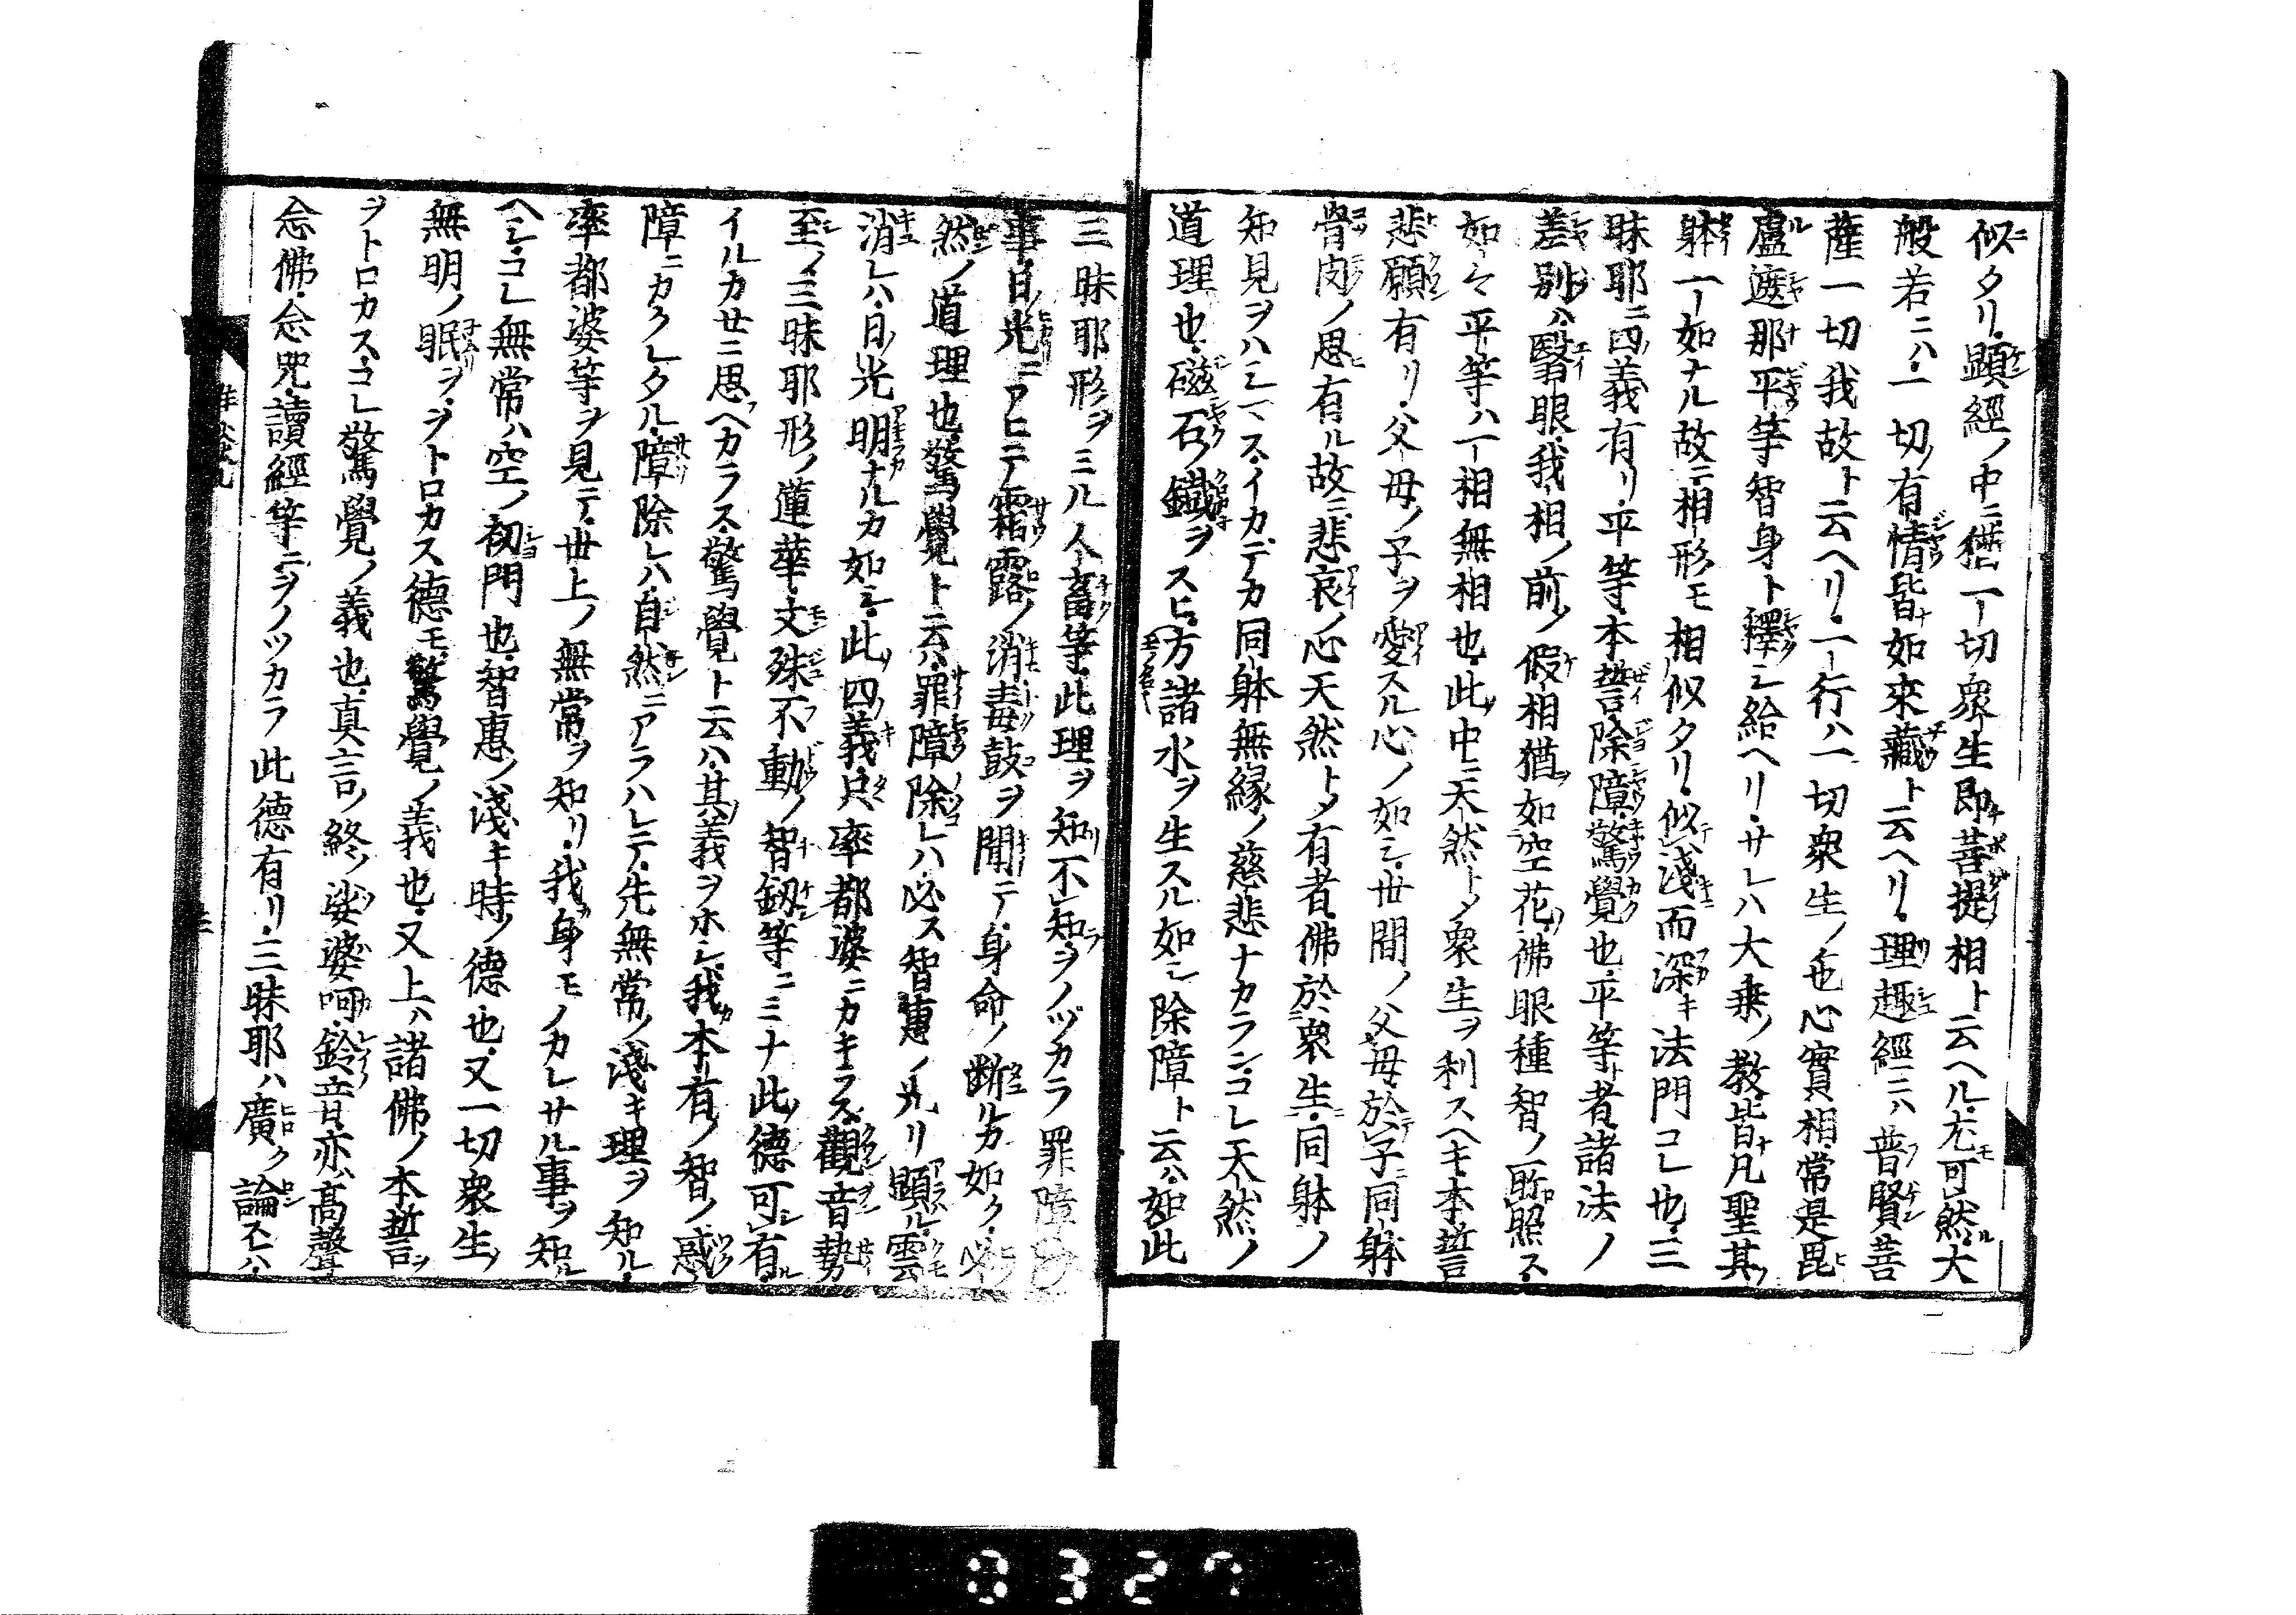 似タリ顯經ノ中ニ猶一切衆生即菩提相ト云ヘル尤可然大
般若ニハ一切有情皆如來藏ト云ヘリ理趣經ニハ普賢菩
薩一切我故ト云ヘリ一行ハ一切衆生ノ色心實相常是毘
盧遮那平等智身ト釋シ給ヘリサレハ大乗ノ教皆凡聖其
躰一如ナル故ニ相形モ相似タリ似淺而深キ法門コレ也三
昧耶ニ四義有リ平等本誓除障驚覺也平等者諸法ノ
差別ハ翳眼我相ノ前ノ假相猶如空花佛眼種智ノ所照ス
如々平等ハ一相無相也此中ニ天然トメ衆生ヲ利スヘキ本誓
悲願有リ父母ノ子ヲ愛スル心ノ如シ世間ノ父母於子同躰
骨肉ノ思有ル故ニ悲哀ノ心天然トメ有者佛於衆生同躰ノ
知見ヲハシマスイカデカ同躰無縁ノ慈悲ナカランコレ天然ノ
道理也磁石ノ鐵ヲスヒ方諸水ヲ生スル如シ除障ト云ハ如此
三昧耶形ヲミル人畜等此理ヲ知不知ヲノヅカラ罪障
事日光ニアヒテ霜露ノ消毒鼓ヲ聞テ身命ノ断ルカ如ク必
然ノ道理也驚覺ト云ハ罪障除レハ必ス智惠ノ光リ顯ル雲
消レハ日光明ナルカ如シ此四義只率都婆ニカキラス觀音勢
至ノ三昧耶形ノ蓮華文殊不動ノ智劔等ニミナ此德可有
イルカセニ思ヘカラス驚覺ト云ハ其義ヲホシ我本有ノ智ノ惑
障ニカクレタル障除レハ自然ニアラハレテ先無常ノ淺キ理ヲ知ル
率都婆等ヲ見テ世上ノ無常ヲ知リ我身モノカレサル事ヲ知ル
ヘシコレ無常ハ空ノ初門也智惠ノ淺キ時ノ德也又一切衆生
無明ノ眠ヲヲトロカス德モ驚覺ノ義也又上ハ諸佛ノ本誓
ヲトロカスコレ驚覺ノ義也真言ノ終ノ娑婆呵鈴音亦高聲
念佛念咒讀經等ニヲノツカラ此德有リ三昧耶ハ廣ク論スレハ